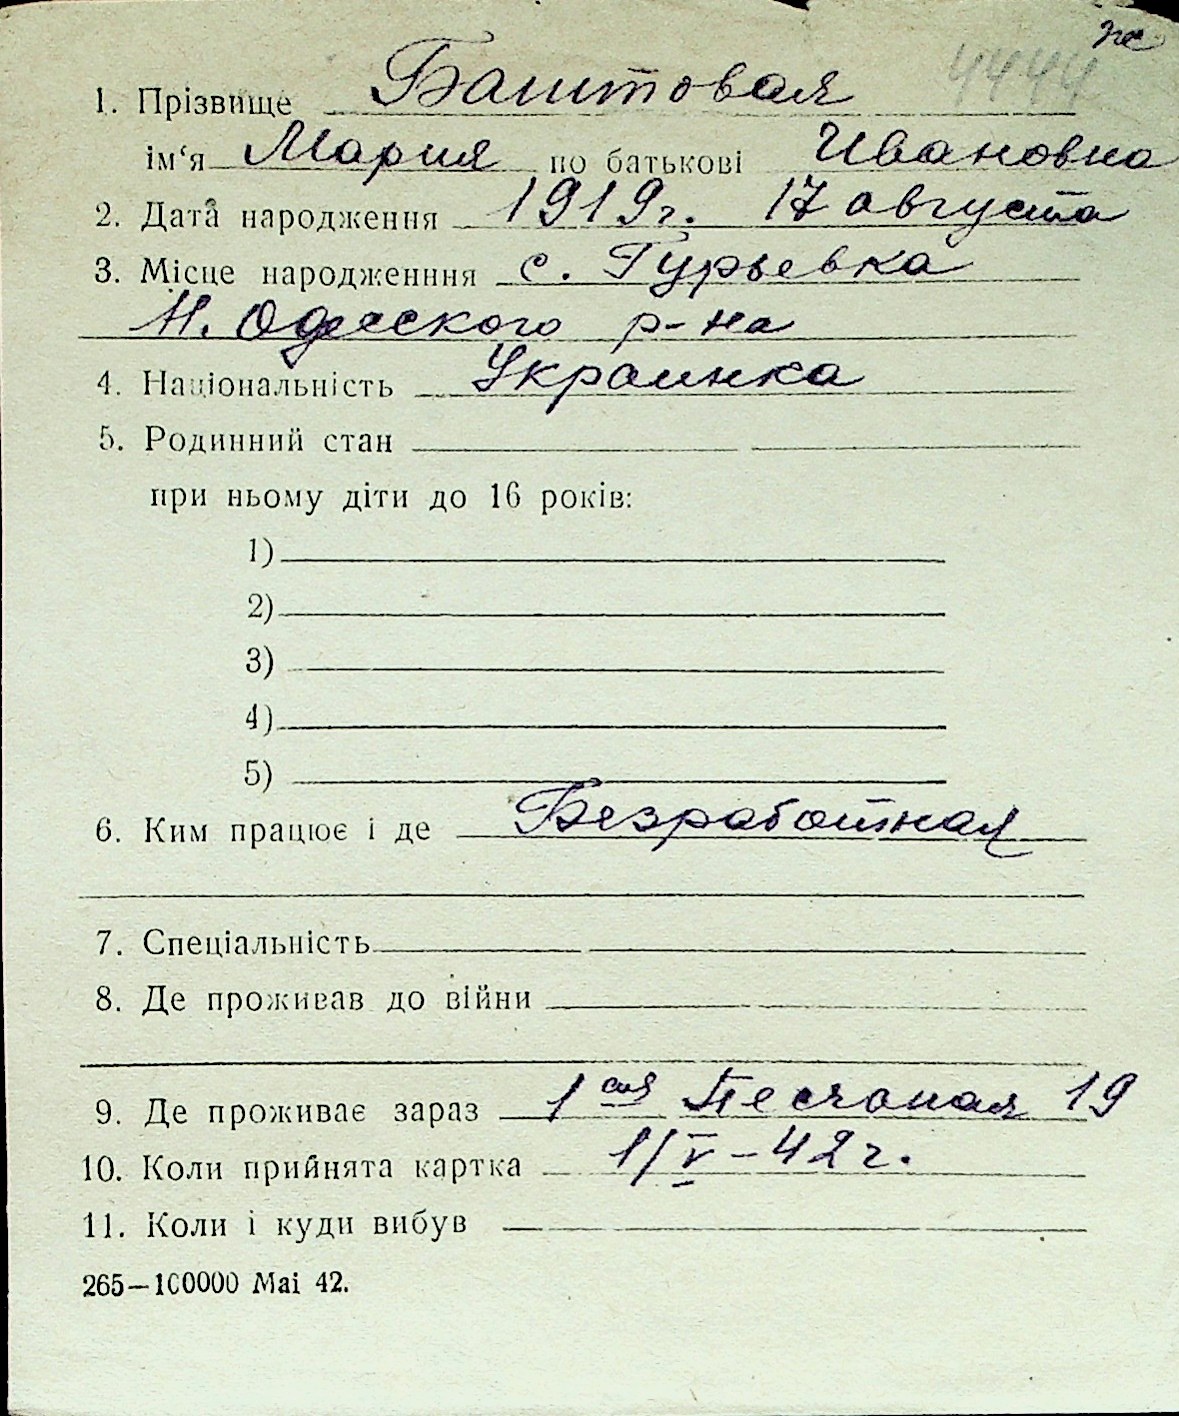 же
4444
1. Прізвище Баштовая
ім‘я Мария по батькові Ивановна
2. Дата народження 1919г. 17 августа
3. Місце народженння с. Гурьевка
Н. Одесского р-на
4. Національність Украинка
5. Родинний стан
при ньому діти до 16 років:
1)
2)
3)
4)
5)
6. Ким працює і де Безработная
7. Спеціальність
8. Де проживав до війни
9. Де проживає зараз 1ая Песчаная 19
10. Коли прийнята картка 1/V – 42г.
11. Коли і куди вибув
265—100000 Маі 42.